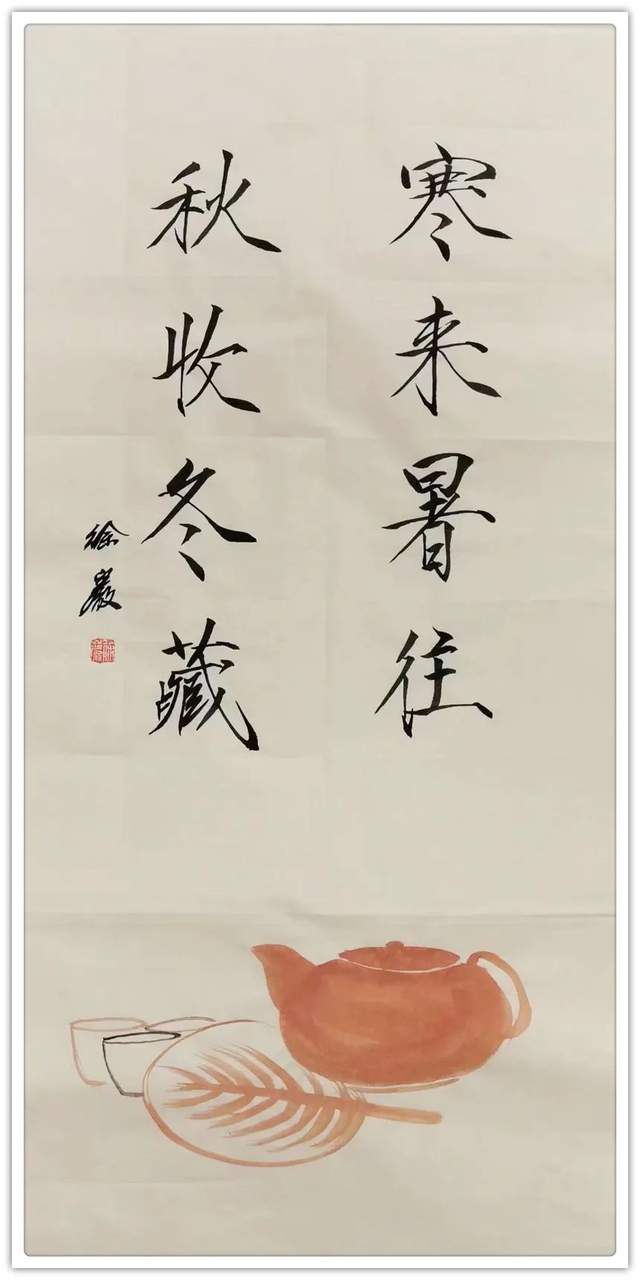 寒来暑往
秋收冬藏
徐岩